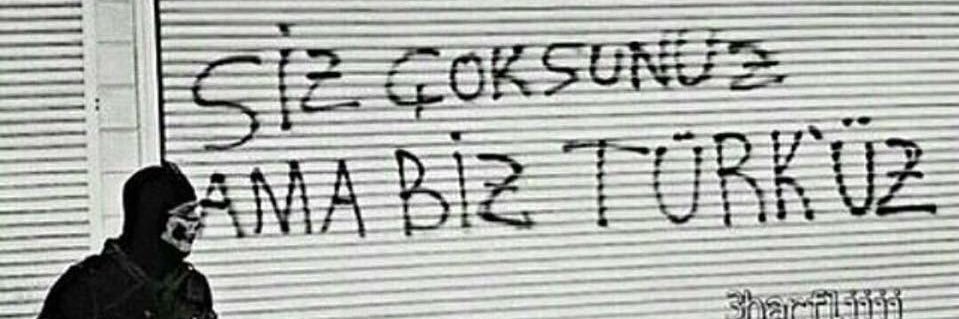 SİZ ÇOKSUNUZ
AMA BİZ TÜRK'ÜZ
3harfliiii